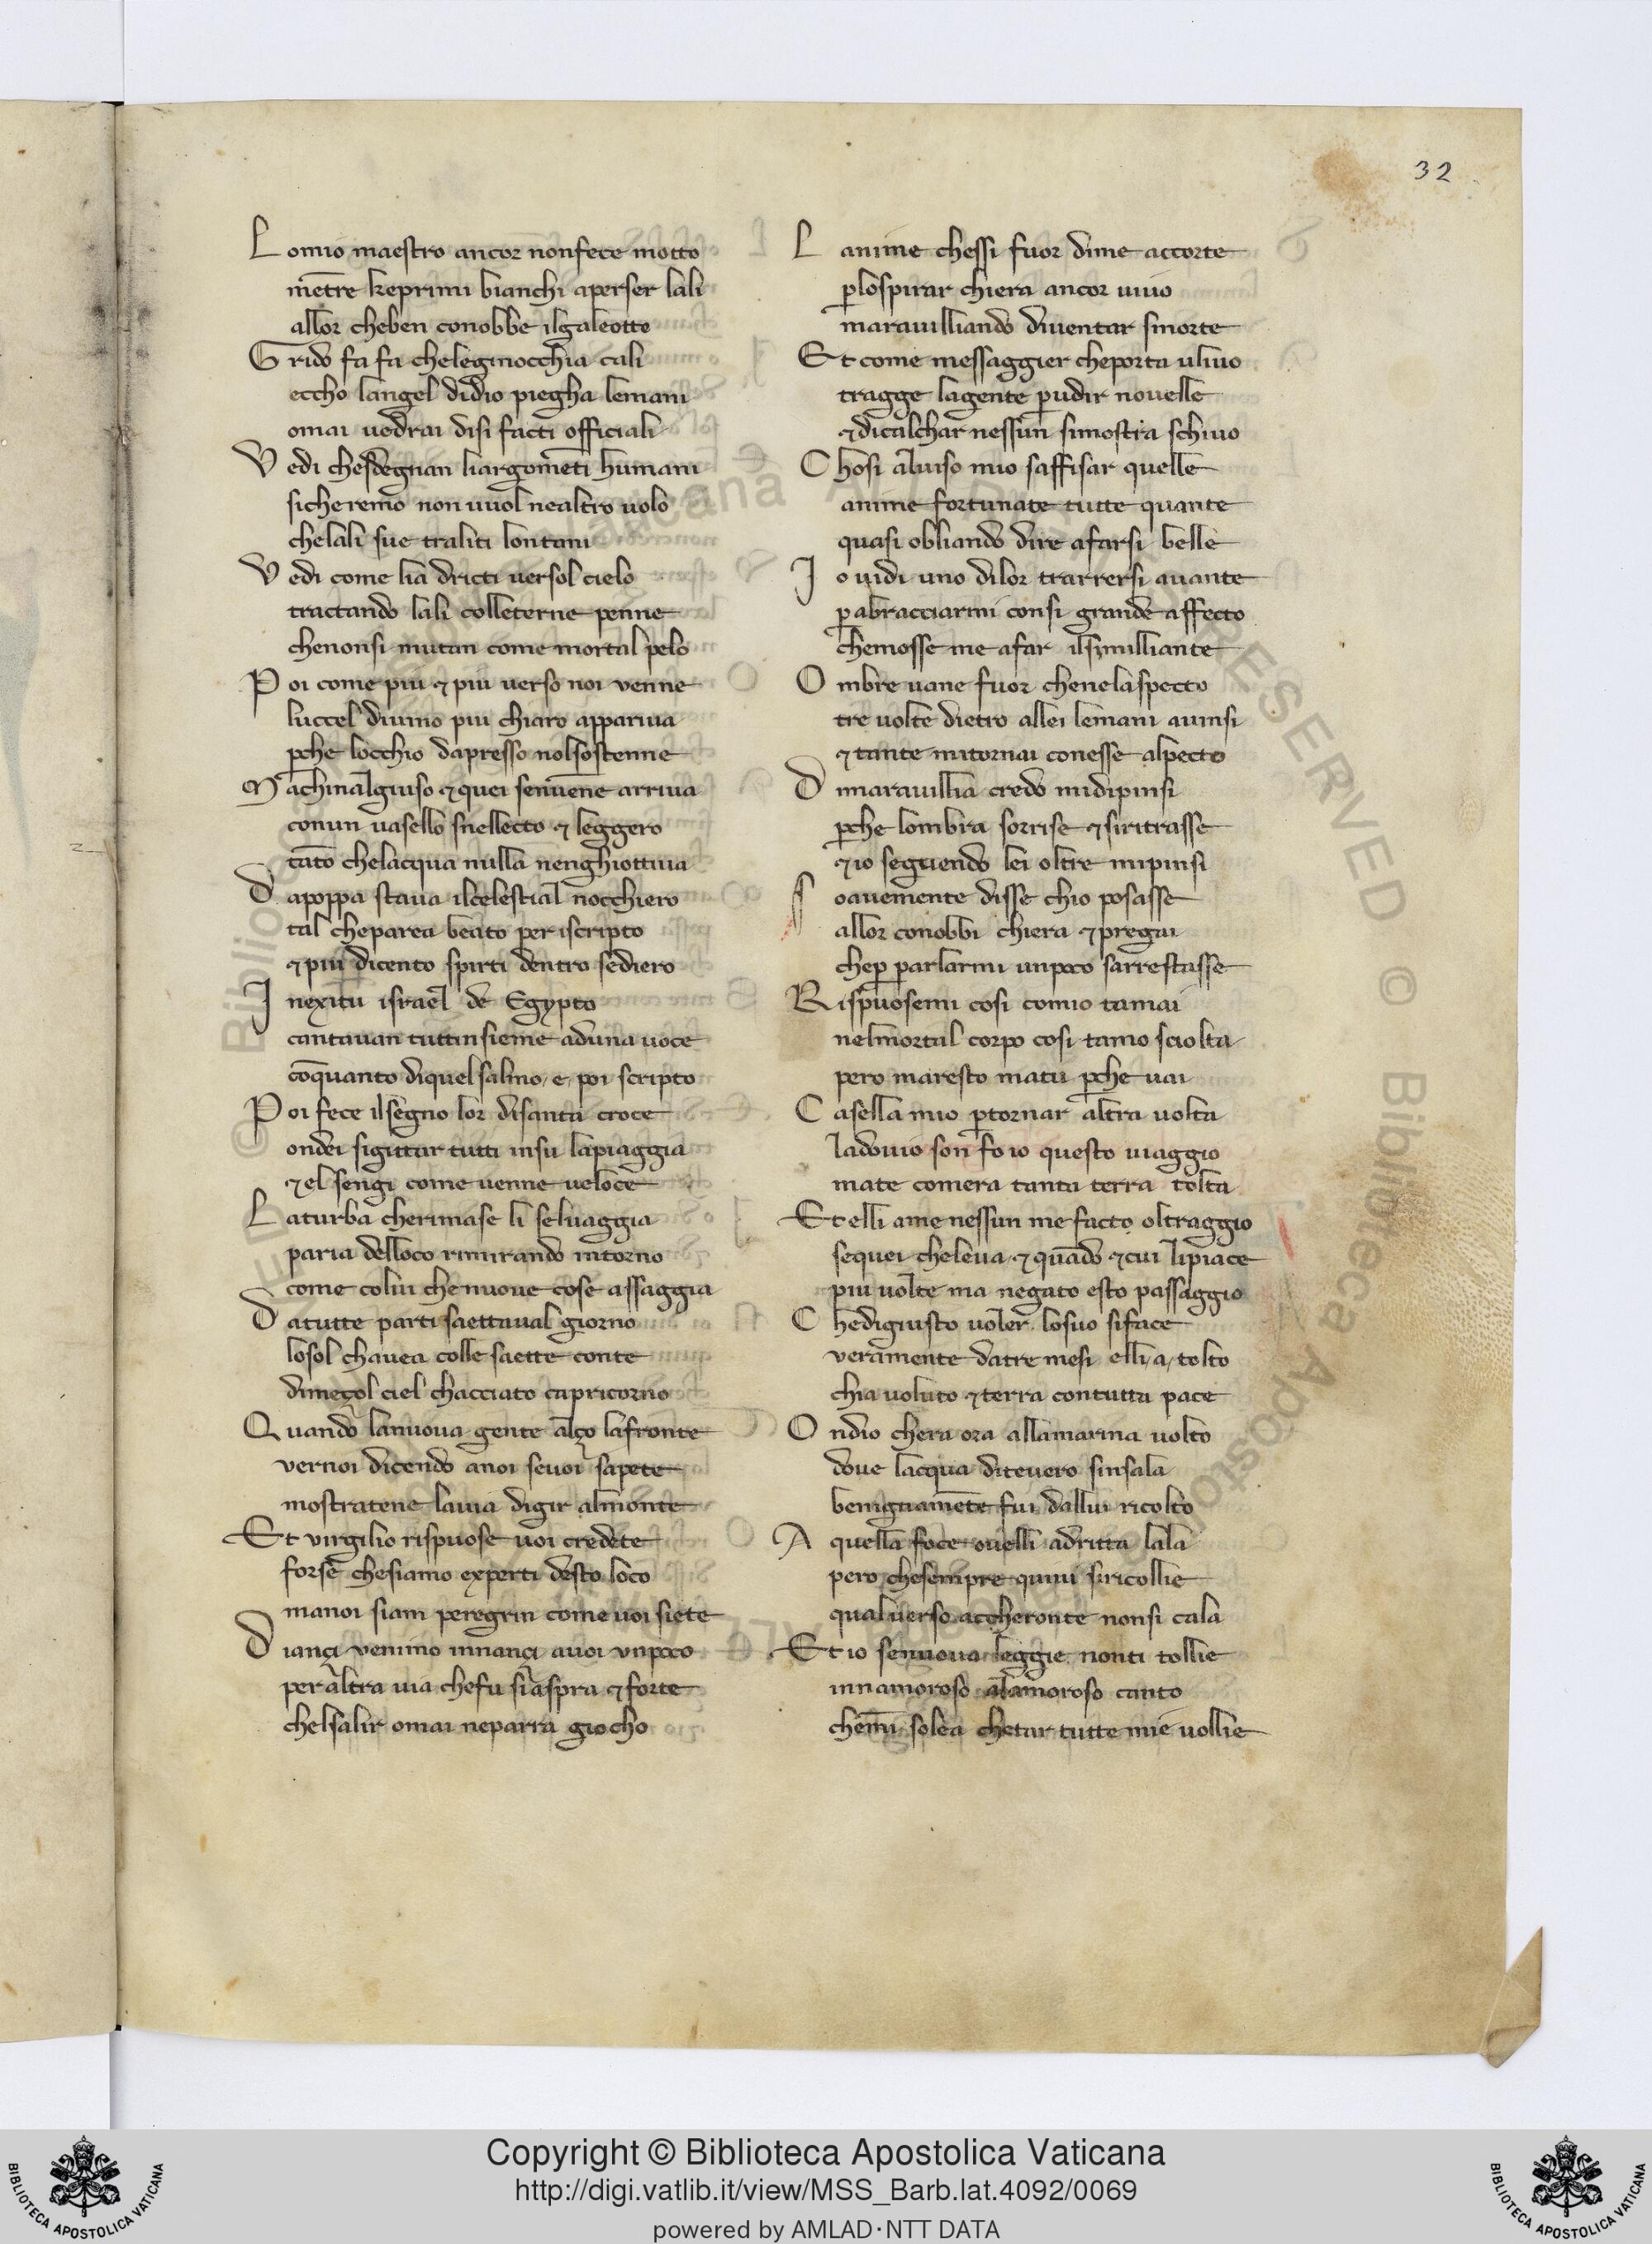 32
L omio maestro ancor nonfece motto
mētre keprimi bianchi aperser lali
allor cheben conobbe ilgaleotto
G rido fa fa cheleginocchia cali
eccho langel didio piegha lemani
omai uedrai disi facti officiali
V edi chesdegnan liargomēti humani
sicheremo non uuol nealtro uolo
chelali sue traliti lontani
V edi come lia dricti uersol cielo
tractando lali colleterne penne
chenonsi mutan come mortal pelo
P oi come piu ⁊ piu uerso noi venne
luccel diuino piu chiaro appariua
ꝑche locchio dapresso nolsostenne
M achinalgiuso ⁊ quei senuēne arriua
conun uasello snellecto ⁊ leggero
tāto chelacqua nulla nenghiottiua
D apoppa staua ilcelestial nocchiero
tal cheparea beato per iscripto
⁊ piu dicento spirti dentro sediero
I nexitu israel de Egypto
cantauan tuttinsieme aduna uoce
cōquanto diquel salmo e poi scripto
P oi fece ilsegno lor disanta croce
ondei sigittar tutti insu lapiaggia
⁊ el sengi come uenne ueloce
L aturba cherimase li seluaggia
paria delloco rimirando intorno
come colui che nuoue cose assaggia
D atutte parti saettaual giorno
losol chauea colle saette conte
dimeçol ciel chacciato capricorno
Q uando lanuoua gente alço lafronte
vernoi dicendo anoi seuoi sapete
mostratene lauia digir almonte
Et virgilio rispuose uoi credete
forse chesiamo experti desto loco
manoi siam peregrin come uoi siete
D iançi venimo innançi auoi vnpoco
per altra uia chefu siaspra ⁊ forte
chelsalir omai neparra giocho
L anime chessi fuor dime accorte
ꝑlospirar chiera ancor uiuo
marauilliando diuentar smorte
Et come messaggier cheporta uliuo
tragge lagente ꝑudir nouelle
⁊ dicalchar nessun simostra schiuo
C hosi aluiso mio saffisar quelle
anime fortunate tutte quante
quasi obliando dire afarsi belle
I o uidi uno dilor trarrersi auante
ꝑabracciarmi consi grande affecto
chemosse me afar ilsimilliante
O mbre uane fuor chenelaspecto
tre uolte dietro allei lemani auinsi
⁊ tante mitornai conesse alpecto
D imarauillia credo midipinsi
ꝑche lombra sorrise ⁊ siritrasse
⁊ io seguendo lei oltre mipinsi
S oauemente disse chio posasse
allor conobbi chiera ⁊ pregai
cheꝑ parlarmi unpoco sarrestasse
R ispuosemi cosi comio tamai
nelmortal corpo cosi tamo sciolta
pero maresto matu ꝑche uai
C asella mio ꝑtornar altra uolta
ladouio son fo io questo uiaggio
mate comera tanta terra tolta
Et elli ame nessun me facto oltraggio
sequei cheleua ⁊ quādo ⁊ cui lipiace
piu uolte ma negato esto passaggio
C hedigiusto uoler losuo siface
veramente datre mesi elli a tolto
chia uoluto ⁊terra contutta pace
O ndio chera ora allamarina uolto
doue lacqua diteuero sinsala
benignamēte fui dallui ricolto
A quella foce ouelli adritta lala
pero chesempre quiui siricollie
qual uerso accheronte nonsi cala
Et io senuoua leggie nonti tollie
innamoroso alamoroso canto
chemi solea chetar tutte mie uollie
Copyright © Biblioteca Apostolica Vaticana
http://digi.vatlib.it/view/MSS_Barb.lat.4092/0069
powered by AMLAD·NTT DATA